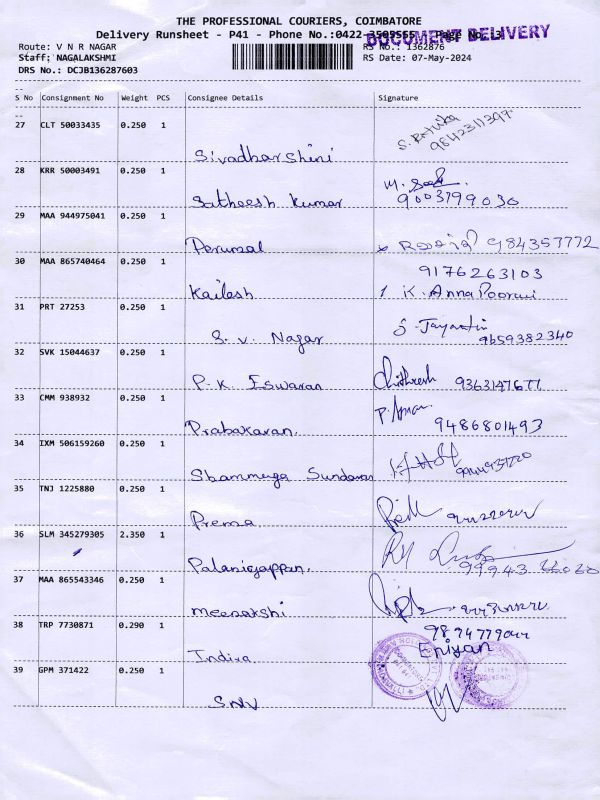 THE PROFESSIONAL COURIERS, COIMBATORE
Delivery Runsheet - P41 - Phone No.:0422-3505555 Page No.:3
DOCUMENT DELIVERY
Route: V N R NAGAR
RS No.: 1362876
Staff: NAGALAKSHMI
RS Date: 07-May-2024
DRS No.: DCJB136287603
S No Consignment No Weight PCS Consignee Details Signature
27 CLT 50033435 0.250 1
Sivadharshini
9842311397
28 KRR 50003491 0.250 1
Satheesh Kumar
9003799030
29 MAA 944975041 0.250 1
Perumal
984357772
30 MAA 865740464 0.250 1
9176263103
Kailesh
K. Anna Poorani
31 PRT 27253 0.250 1
S. Jayanthi
S. V. Nagar
9659382340
32 SVK 15044637 0.250 1
P. K. Eswaran
9363147677
33 CMM 938932 0.250 1
Prabakaran.
9486801493
34 IXM 506159260 0.250 1
Shanmuga Sundaran
35 TNJ 1225880 0.250 1
Prema
36 SLM 345279305 2.350 1
Palaniyappan.
37 MAA 865543346 0.250 1
Meenakshi
38 TRP 7730871 0.290 1
Eniyan
Indira
39 GPM 371422 0.250 1
SNV